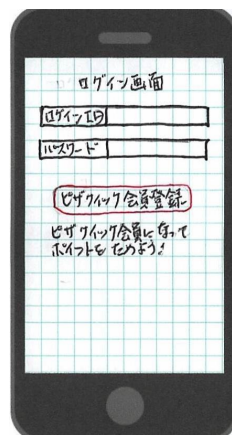 ログイン画面
ログインID
パスワード
ピザクイック会員登録
ピザクイック会員になって
ポイントをためよう!